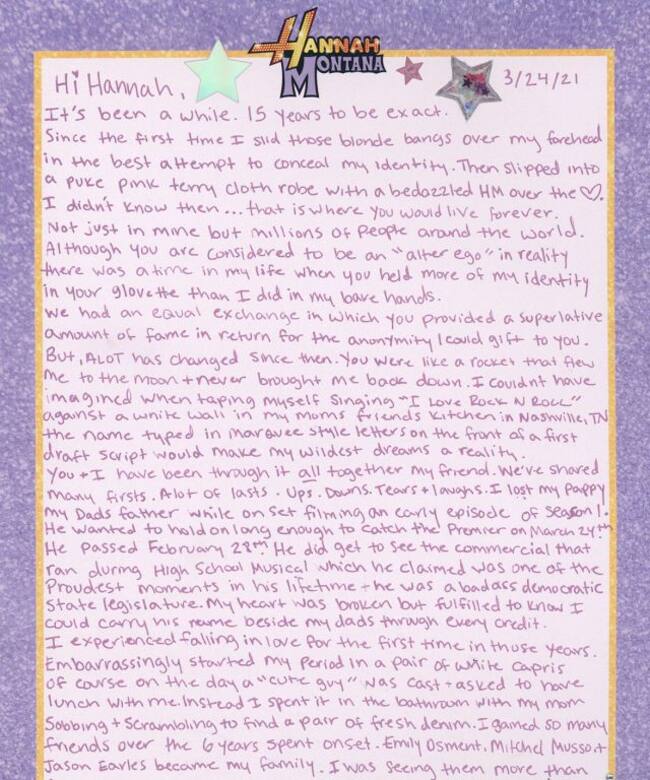 HANNAH
MONTANA
Hi Hannah,
3/24/21
It's been a while. 15 years to be exact.
Since the first time I slid those blonde bangs over my forehead
in the best attempt to conceal my identity. Then slipped into
a puke pink terry cloth robe with a bedazzled HM over the ♡.
I didn't know then... that is where you would live forever.
Not just in mine but millions of people around the world.
Although you are considered to be an "alter ego" in reality
there was a time in my life when you held more of my identity
in your glovette than I did in my bare hands.
We had an equal exchange in which you provided a superlative
amount of fame in return for the anonymity I could gift to you.
But, ALOT has changed since then. You were like a rocket that flew
me to the moon + never brought me back down. I couldnt have
imagined when taping myself singing "I Love Rock N Roll"
against a white wall in my moms friends kitchen in Nashville, TN
the name typed in marquee style letters on the front of a first
draft script would make my wildest dreams a reality.
You + I have been through it all together my friend. We've shared
many firsts. Alot of lasts. Ups. Downs. Tears + laughs. I lost my Pappy
my Dads father while on set filming an early episode of season 1.
He wanted to hold on long enough to catch the Premier on March 24th
He passed February 28th. He did get to see the commercial that
ran during High School Musical which he claimed was one of the
Proudest moments in his lifetime + he was a badass democratic
state legislature. My heart was broken but fulfilled to know I
could carry his name beside my dads through every credit.
I experienced falling in love for the first time in those years.
Embarrassingly started my period in a pair of white capris
of course on the day a "cute guy" was cast + asked to have
lunch with me. Instead I spent it in the bathroom with my mom
Sobbing + scrambling to find a pair of fresh denim. I gained so many
friends over the 6 years spent onset. Emily Osment, Mitchel Musso, +
Jason Earles became my family. I was seeing them more than